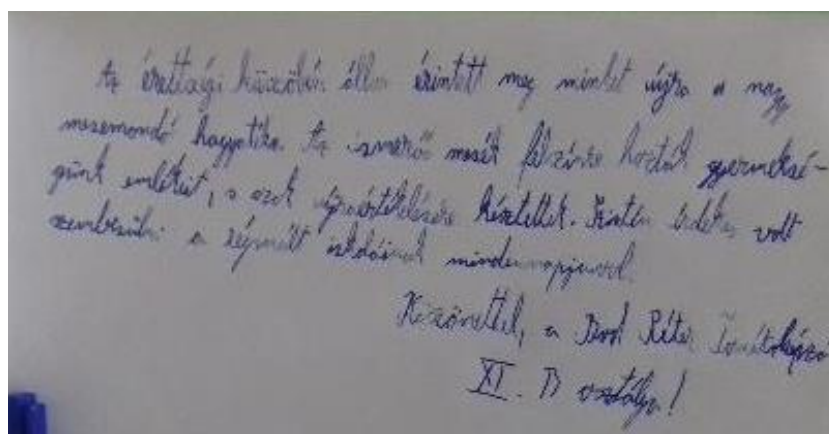 Az érettségi küszöbén állva érintett meg minket újra a nagy
mesemondó hagyatéka. Az ismerős mesék felszínre hozták gyermeksé-
günk emlékeit, s azok újraértékelésére késztettek. Szintén érdekes volt
szembesülni a régmúlt iskoláinak mindennapjaival.
Köszönettel, a Bod Péter Tanítóképző
XI. B osztálya!